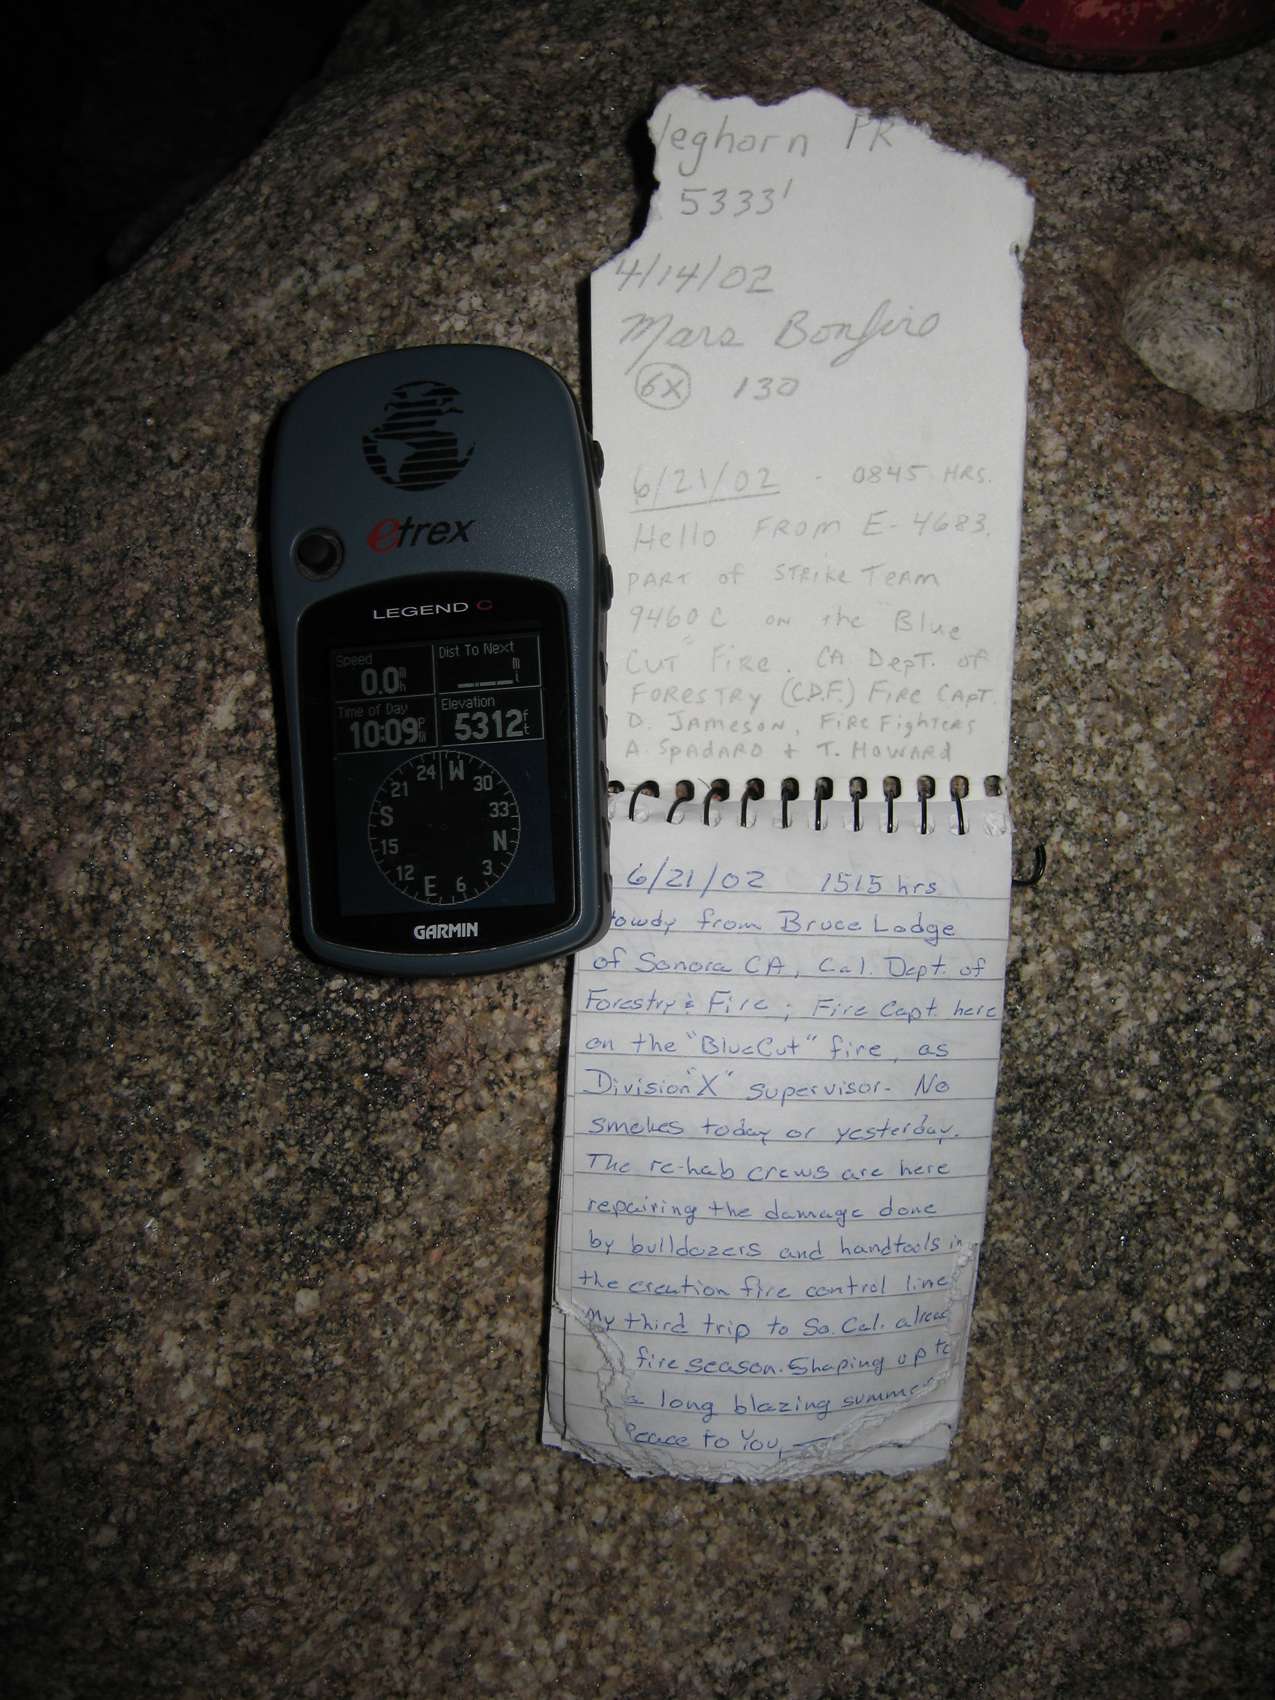 etrex
LEGEND C
Speed
0.0
Dist To Next
Time of Day
10:09
Elevation
5312 ft
24 W 30 33 N 3 6 E 12 15 S 21
GARMIN
leghorn PK
5333'
4/14/02
Mars Bonfire
6X 130
6/21/02 - 0845 HRS.
Hello FROM E-4683.
PART of STRIKE TEAM
9460C on the "Blue
CUT" FIRE. CA DEPT. of
FORESTRY (C.D.F.) FIRE CAPT.
D. JAMESON, FIRE FIGHTERS
A. SPADARO + T. HOWARD
6/21/02 1515 hrs
owdy from Bruce Lodge
of Sonora CA, Cal. Dept. of
Forestry & Fire; Fire Capt. here
on the "BlueCut" fire, as
Division "X" supervisor. No
smokes today or yesterday.
The re-hab crews are here
repairing the damage done
by bulldozers and handtools in
the creation fire control line
My third trip to So. Cal. alrea
fire season. Shaping up to
a long blazing summe
Peace to You,